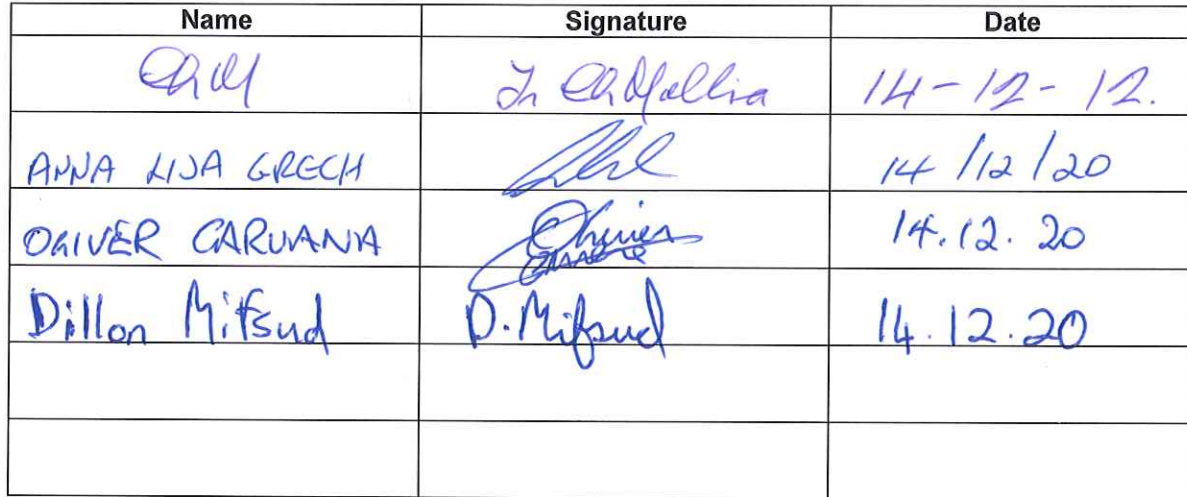 Name Signature Date
14-12-12.
ANNA LISA GRECH 14/12/20
OLIVER CARUANA Oliver 14.12.20
Dillon Mifsud D. Mifsud 14.12.20